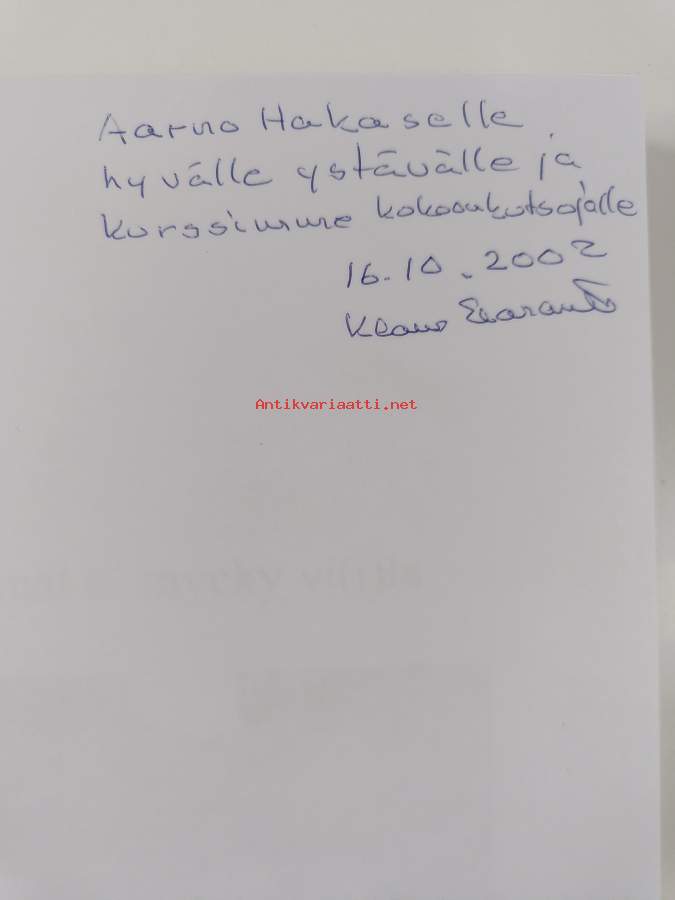 Aarno Hakaselle
hyvälle ystävälle ja
kurssimme kokoonkutsojalle
16.10.2002
Klaus
Antikvariaatti.net